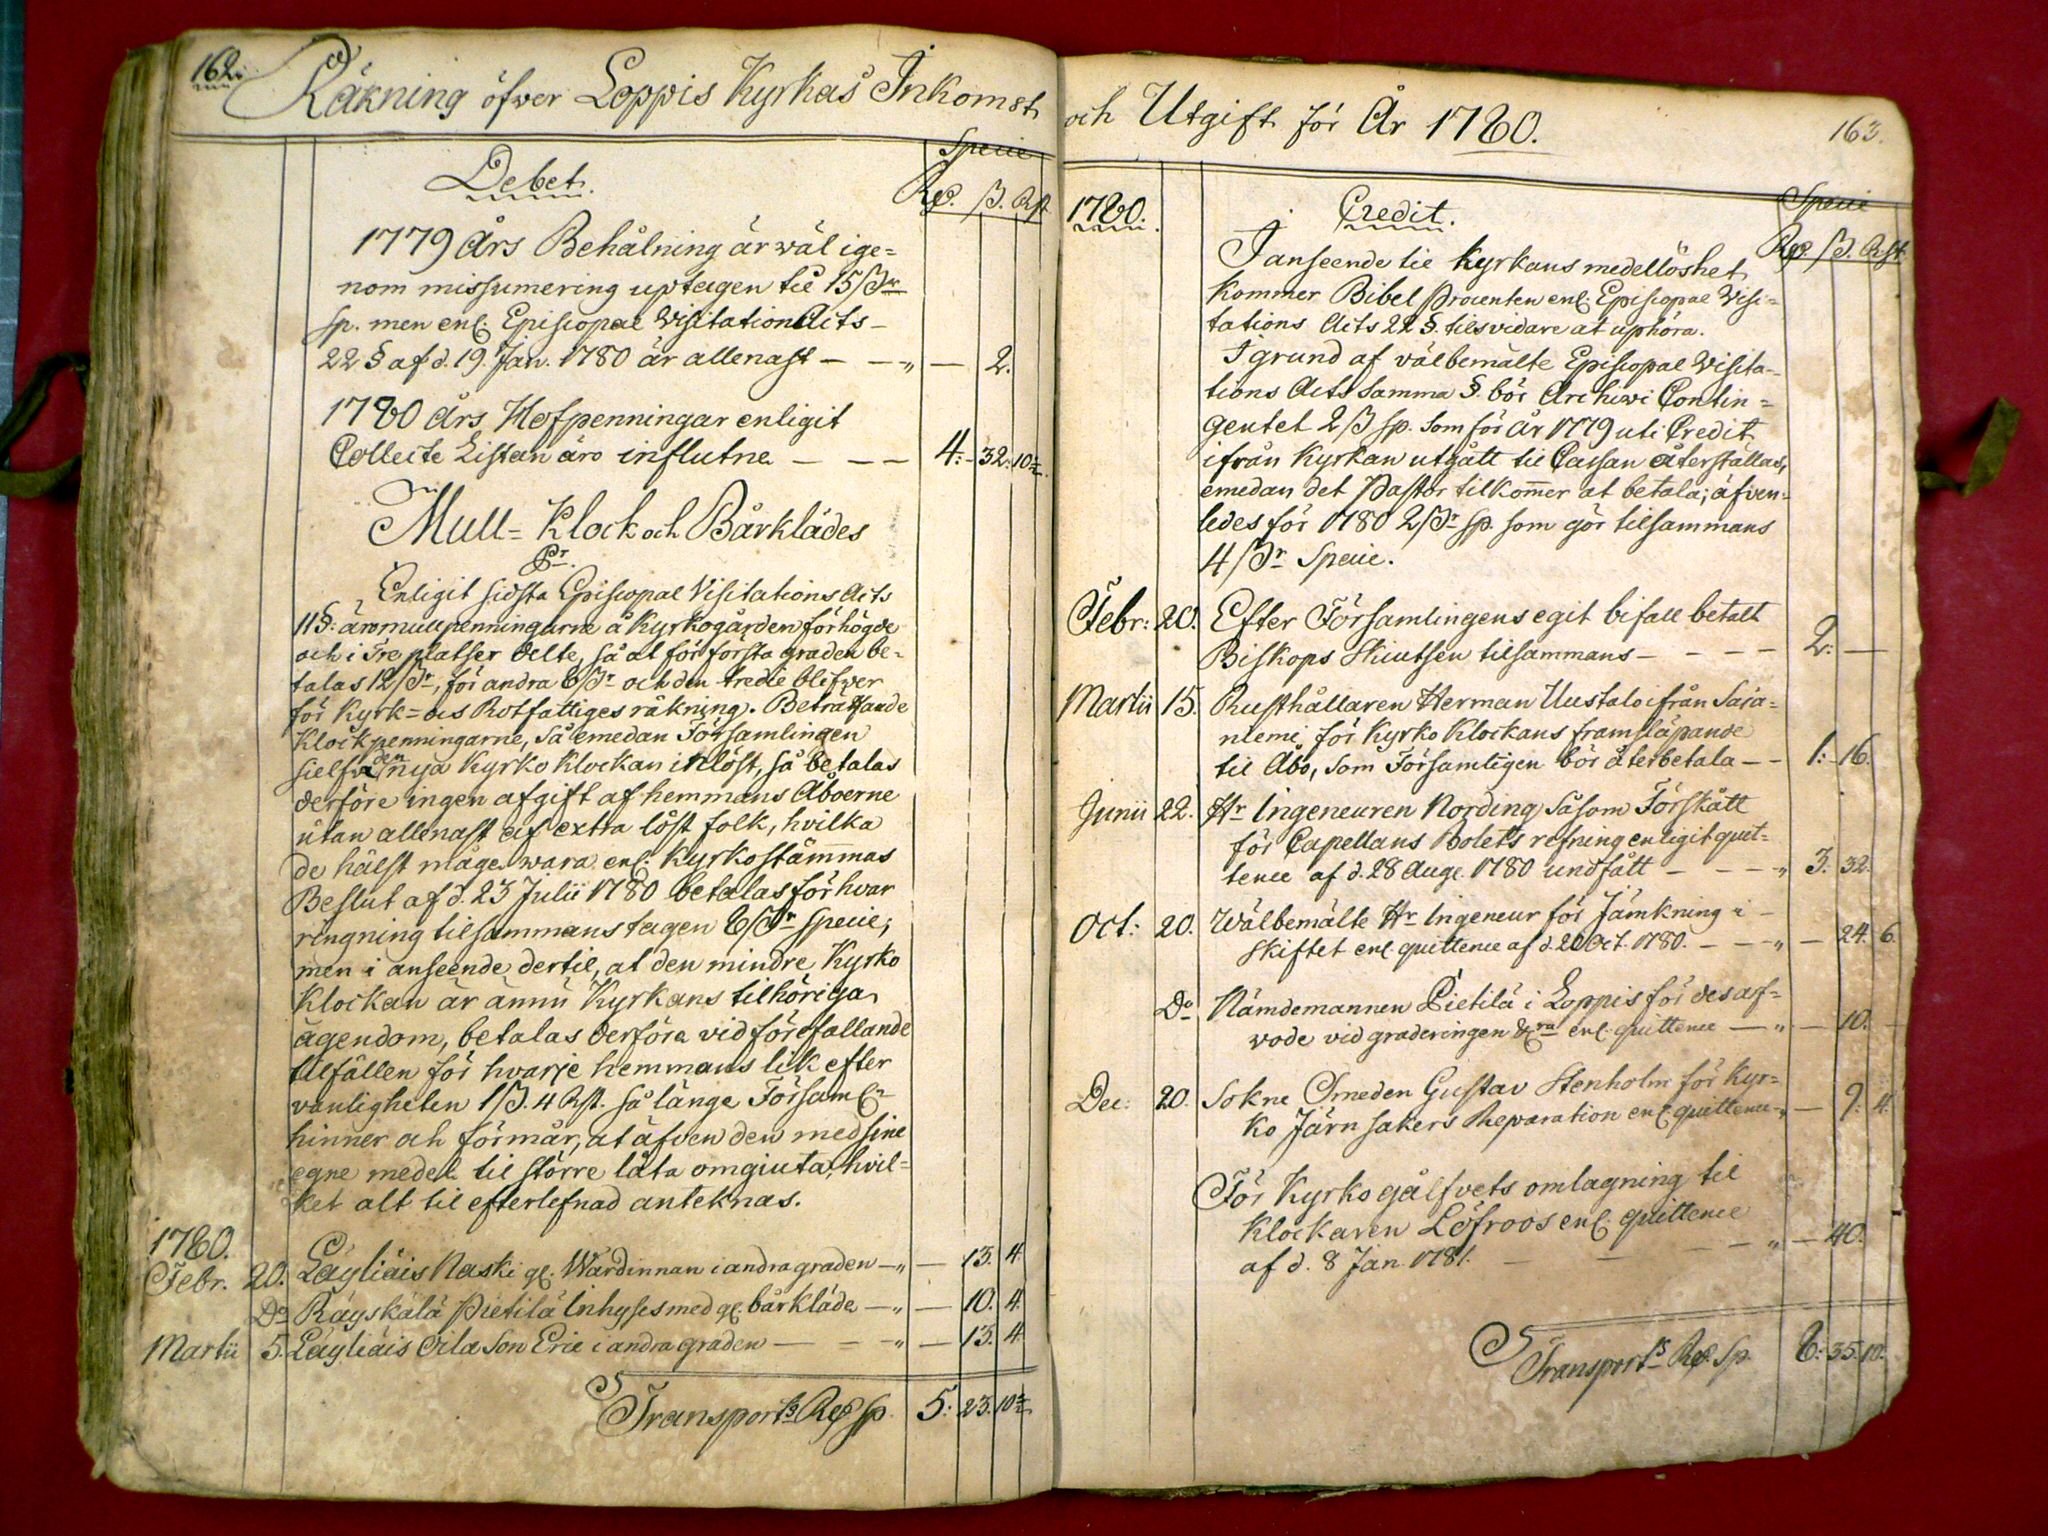 162.
Räkning öfver Loppis Kyrkas Inkomst
Debet.
Specie
Rd. ß. Rst.
1779 Års Behålning är wäl ige=
nom missumering uptagen til 15 ßr
sp. men enl. Episcopal Visitation Acts
22 § af d. 19. Jan. 1780 är allenast — — „ — 2.
1780 Års Hofpenningar enligit
Collecte Listan äro influtne — — — 4: 32: 10½.
Mull= Klock och Bårklädes
Pr.
Enligit sidsta Episcopal Visitations Acts
11 §: äro mullpenningarne å Kyrkogården förhögde
och i Tre platser delte, så at för första graden be-
talas 12 ßr, för andra 6 ßr och den tredie blifver
för Kyrk= och Rotfattiges räkning. Beträffande
Klockpenningarne, så emedan Församlingen
sielf den nya Kyrko Klockan inlöst, så betalas
derföre ingen afgift af hemmans Åboerne
utan allenast af extra löst folk, hvilka
de hälst måge wara enl. Kyrkostämmas
Beslut af d. 23 Julii 1780 betalas för hvar
ringning tilsammanstagen 6 ßr specie;
men i anseende dertil, at den mindre Kyrko
Klockan är ännu Kyrkans tilhöriga
ägendom, betalas derföre vid förefallande
tilfällen för hvarje hemmans lik efter
vanligheten 1 ß. 4 Rst. så länge Församln
hinner och förmår, at äfven den med sine
egne medel til större låta omgiuta, hvil=
ket alt til efterlefnad anteknas.
1780.
Febr. 20. Läyliäis Naski gl. Wärdinnan i andra graden — „ — 13. 4.
Do Räyskälä Pietilä Inhyses med gl. bårkläde — „ — 10. 4.
Martii 5. Läyliäis Oila Son Eric i andra graden — — „ — 13. 4
Transports Rd Sp. 5: 23. 10½.
och Utgift för År 1780.
163.
1780.
Credit.
Specie
Rd. ß. Rst.
I anseende til kyrkans medellöshet
kommer Bibel Procenten enl. Episcopal Visi=
tations Acts 22 §. tilsvidare at uphöra.
I grund af välbemälte Episcopal Visita-
tions Acts samma §. bör Archivi Contin=
gentet 2 ß sp. som för År 1779 uti Credit
ifrån Kyrkan utgått til Cassan återställas,
emedan det Pastor tilkommer at betala; äfven-
ledes för 1780 2 ßr sp. som gör tilsammans
4 ßr Specie.
Febr: 20. Efter Församlingens egit bifall betalt
Biskops Skiutsen tilsammans — — — — 2: —
Martii 15. Rusthållaren Herman Uustalo ifrån Saja=
niemi för Kyrko Klockans framsläpande
til Åbo, som Församligen bör återbetala — — 1: 16.
Junii 22. Hr Ingeneuren Nording såsom Förskått
för Capellans Bolets refning enligit quit=
tence af d. 28 Aug. 1780 undfått — — — „ 3. 32.
Oct: 20. Wälbemälte Hr Ingeneur för Jämkning i —
skiftet enl quittence af d. 20 Oct. 1780. — — „ — 24. 6.
Do Nämdemannen Pietilä i Loppis för des arf=
wode vid graderingen &ra enl. quittence — „ — 10. —
Dec: 20. Sokne Smeden Gustav Stenholm för Kyr=
ko Järnsakers Reparation enl. quittence „ — 9. 4.
För Kyrko gålfvets omlagning til
Klockaren Löfroos enl. quittence
af d. 8 Jan. 1781. — — — „ — 40.
Transports Rd. Sp. 8: 35. 10.